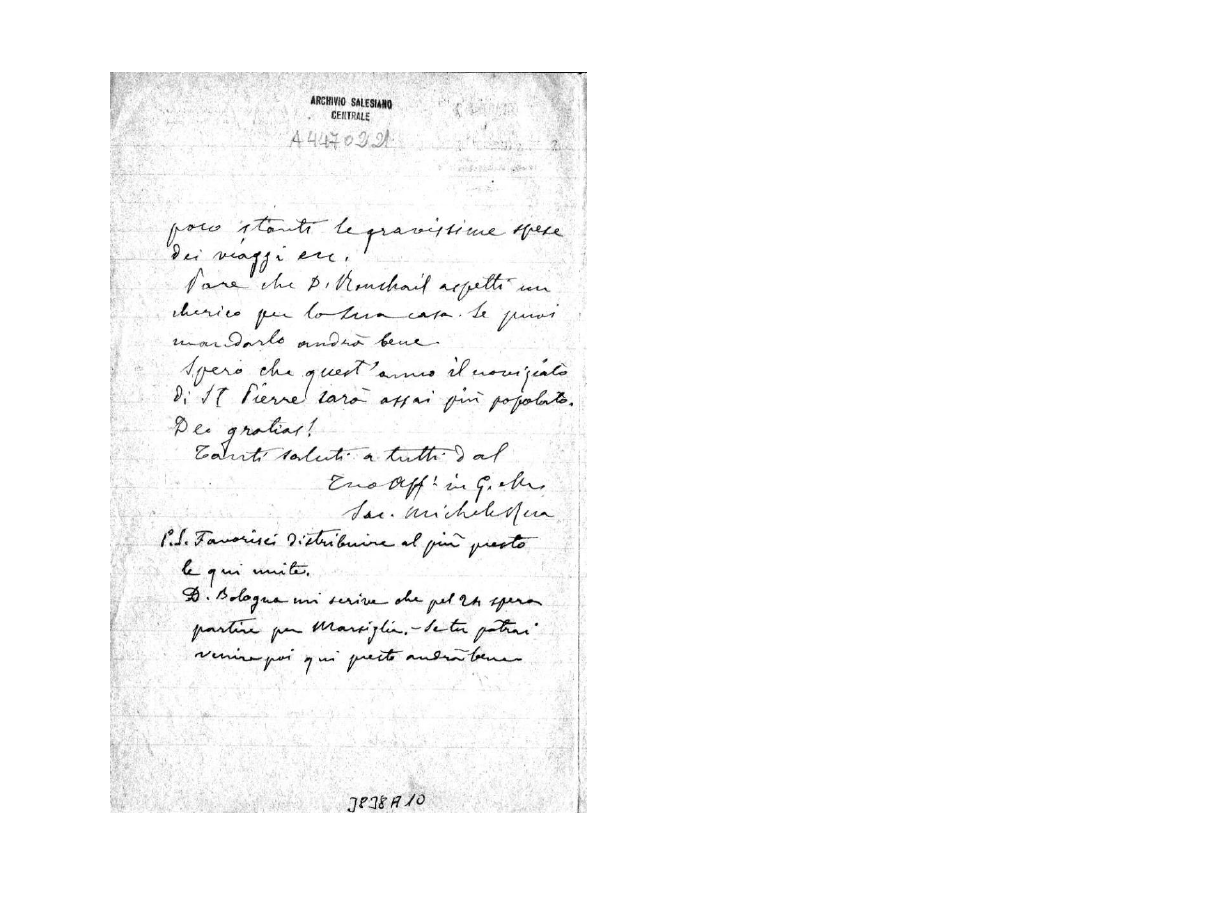 ARCHIVIO SALESIANO
CENTRALE
A447022
2
poco stanti le gravissime spese
dei viaggi ecc.
Pare che D. Ronchail aspetti un
cherico per la sua casa. Se puoi
mandarlo andrà bene.
Spero che quest'anno il noviziato
di St Pierre sarà assai più popolato.
Deo gratias!
Tanti saluti a tutti dal
Tuo Aff. in G. e M.
Sac. Michele Rua
P.S. Favorisci distribuire al più presto
le qui unite.
D. Bologna mi scrive che pel 24 spera
partire per Marsiglia. - Se tu potrai
venire poi qui presto andrà bene